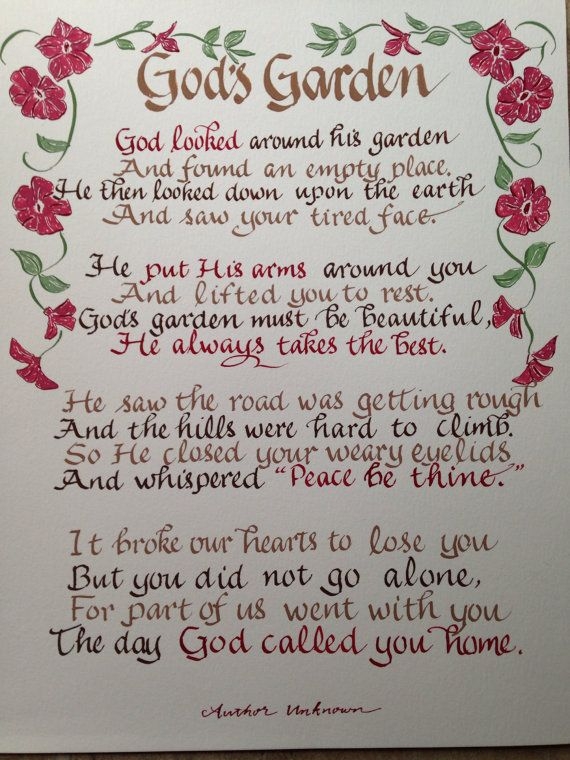 God's Garden
God looked around his garden
And found an empty place.
He then looked down upon the earth
And saw your tired face.
He put His arms around you
And lifted you to rest.
God's garden must be beautiful,
He always takes the best.
He saw the road was getting rough
And the hills were hard to climb.
So He closed your weary eyelids
And whispered "Peace be thine."
It broke our hearts to lose you
But you did not go alone,
For part of us went with you
The day God called you home.
Author Unknown